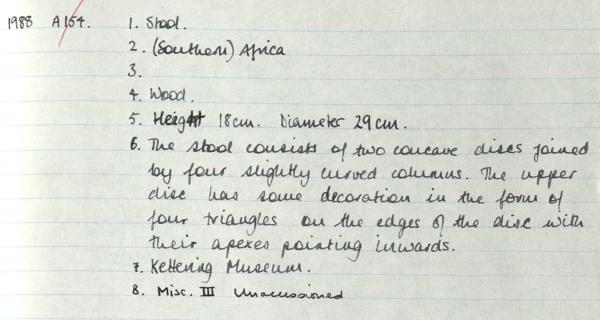 1988 A154. 1. Stool.
2. (Southern) Africa
3.
4. Wood.
5. Height 18cm. Diameter 29cm.
6. The stool consists of two concave discs joined
by four slightly curved columns. The upper
disc has some decoration in the form of
four triangles on the edges of the disc with
their apexes pointing inwards.
7. Kettering Museum.
8. Misc. III Unaccessioned